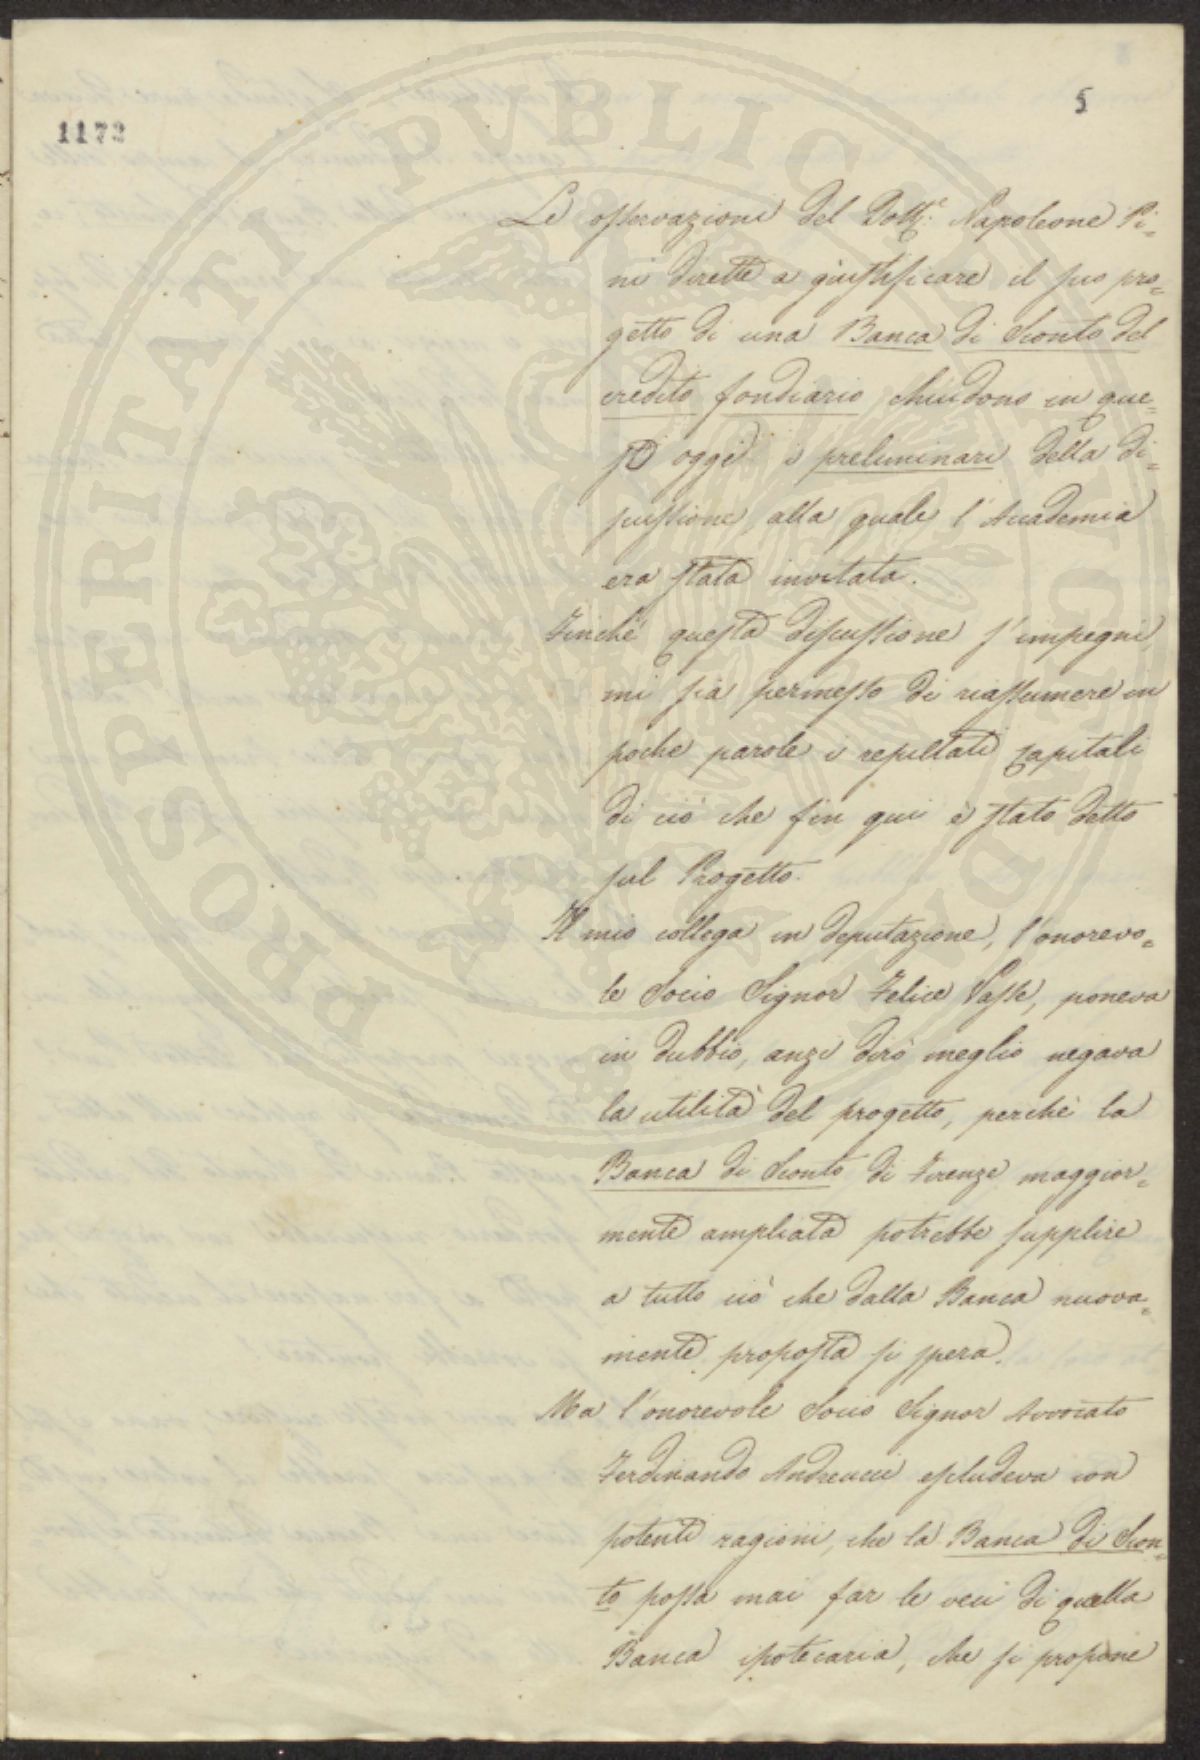 1172
5
Le osservazioni del Dott.e Napoleone Pi=
ni dirette a giustificare il suo pro=
getto di una Banca di Sconto del
credito fondiario chiudono in que=
st'oggi i preliminari della di=
scussione, alla quale l'Accademia
era stata invitata.
Finchè questa discussione s'impegni,
mi sia permesso di riassumere in
poche parole i resultati capitali
di ciò che fin qui è stato detto
sul Progetto.
Il mio collega in deputazione, l'onorevo=
le Socio Signor Felice Vasse, poneva
in dubbio, anzi dirò meglio negava
la utilità del progetto, perchè la
Banca di Sconto di Firenze maggior=
mente ampliata potrebbe supplire
a tutto ciò che dalla Banca nuova=
mente proposta si spera.
Ma l'onorevole Socio Signor Avvocato
Ferdinando Andreucci escludeva con
potenti ragioni, che la Banca di Scon=
to possa mai far le veci di quella
Banca ipotecaria, che si propone
PROSPERITATI PUBLICAE